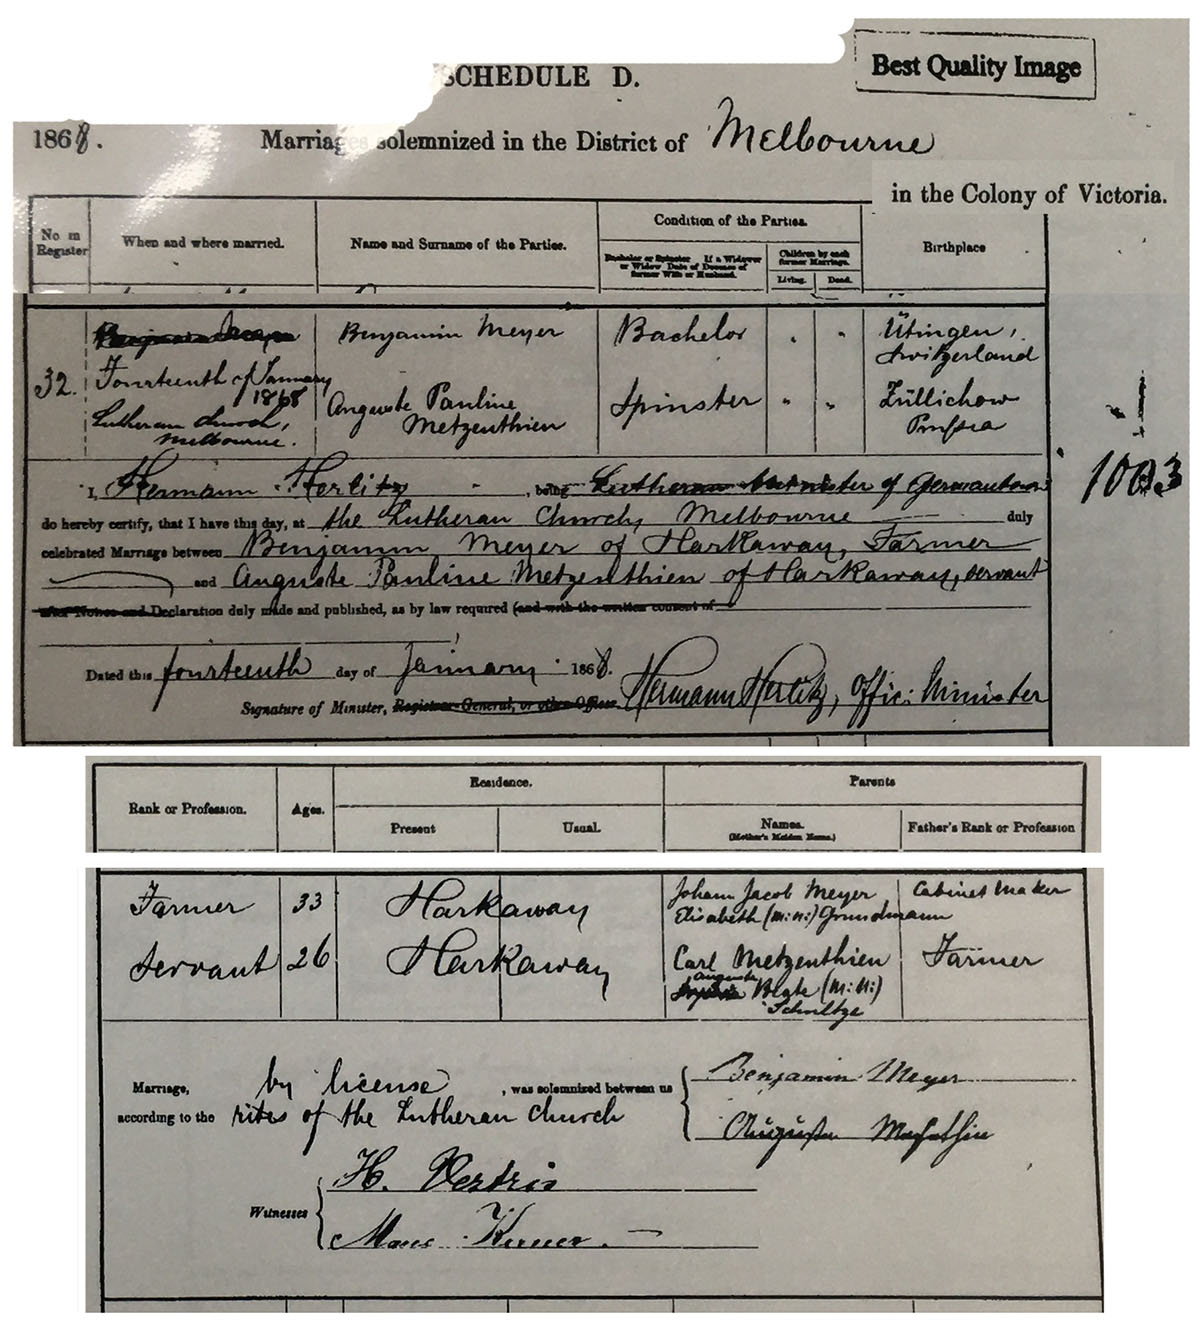 SCHEDULE D.
Best Quality Image
1868. Marriages solemnized in the District of Melbourne
in the Colony of Victoria.
No in Register
When and where married.
Name and Surname of the Parties.
Condition of the Parties.
Bachelor or Spinster. If a Widower or Widow Date of Decease of former Wife or Husband.
Children by each former Marriage.
Living. Dead.
Birthplace
32.
Fourteenth of January
1868
Lutheran Church,
Melbourne.
Benjamin Meyer
Bachelor
Ütingen,
Switzerland
Auguste Pauline
Metzenthien
Spinster
Züllichow
Prussia
1003
I, Hermann Herlitz, being Lutheran Minister of Germantown
do hereby certify, that I have this day, at the Lutheran Church, Melbourne duly
celebrated Marriage between Benjamin Meyer of Harkaway, Farmer
and Auguste Pauline Metzenthien of Harkaway, servant
after Notice and Declaration duly made and published, as by law required (and with the written consent of
Dated this fourteenth day of January 1868.
Signature of Minister, Registrar-General, or other Officer Hermann Herlitz, Offic: Minister
Rank or Profession.
Ages.
Residence.
Present
Usual.
Parents
Names.
(Mother's Maiden Name.)
Father's Rank or Profession
Farmer 33 Harkaway
Johann Jacob Meyer
Elisabeth (m:n:) Grundmann
Cabinet Maker
Servant 26 Harkaway
Carl Metzenthien
Auguste
Beate (m:n:)
Schultze
Farmer
Marriage, by license, was solemnized between us
according to the rites of the Lutheran Church
Benjamin Meyer
Witnesses
H.